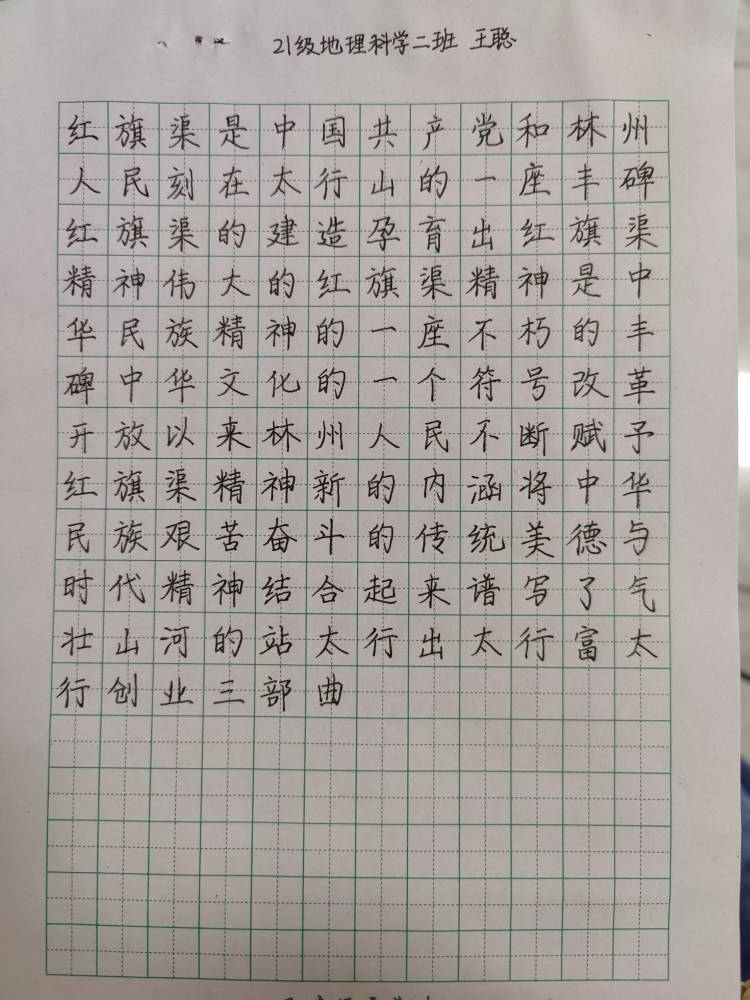 21级地理科学二班 王聪
红旗渠是中国共产党和林州
人民刻在太行山的一座丰碑
红旗渠的建造孕育出红旗渠
精神伟大的红旗渠精神是中
华民族精神的一座不朽的丰
碑中华文化的一个符号改革
开放以来林州人民不断赋予
红旗渠精神新的内涵将中华
民族艰苦奋斗的传统美德与
时代精神结合起来谱写了气
壮山河的站太行出太行富太
行创业三部曲